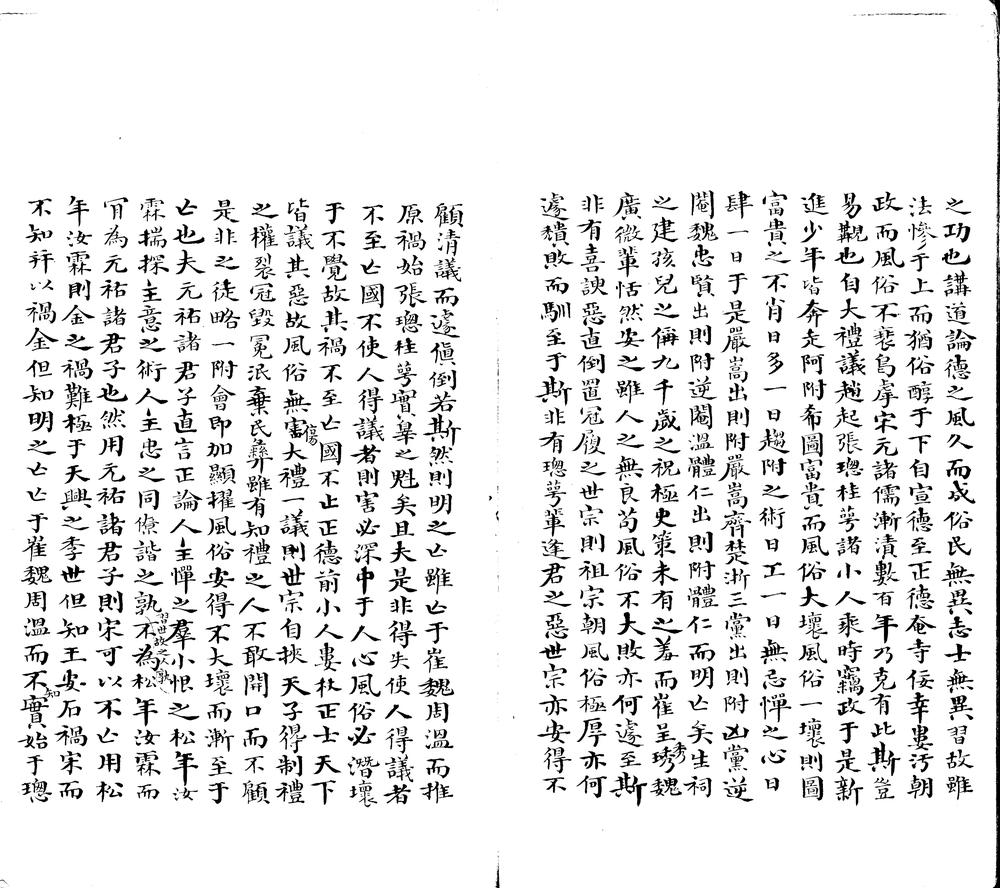 之功也講道論德之風久而成俗民無異志士無異習故雖
法慘于上而猶俗醇于下自宣德至正德奄寺佞幸婁汚朝
政而風俗不衰烏虖宋元諸儒漸漬數百年乃克有此斯豈
易覯也自大禮議起張璁桂萼諸小人乘時竊政于是新
進少年皆奔走阿附希圖富貴而風俗大壞風俗一壞則圖
富貴之不肖日多一日趨附之術日工一日無忌憚之心日
肆一日于是嚴嵩出則附嚴嵩齊楚浙三黨出則附凶黨逆
閹魏忠賢出則附逆閹溫體仁出則附體仁而明亡矣生祠
之建孩兒之偁九千歲之祝極史策未有之羞而崔呈琇秀魏
廣微輩恬然安之雖人之無良苟風俗不大敗亦何遽至斯
非有喜諛惡直倒置冠履之世宗則祖宗朝風俗極厚亦何
遽穨敗而馴至于斯非有璁萼輩逢君之惡世宗亦安得不
顧清議而遽傎倒若斯然則明之亡雖亡于崔魏周溫而推
原禍始張璁桂萼實辠之魁矣且夫是非得失使人得議者
不至亡國不使人得議者則害必深中于人心風俗必潛壞
于不覺故其禍不至亡國不止正德前小人婁杖正士天下
皆議其惡故風俗無害傷大禮一議則世宗自挾天子得制禮
之權裂冠毀冕泯棄民彝雖有知禮之人不敢開口而不顧
是非之徒略一附會即加顯擢風俗安得不大壞而漸至于
亡也夫元祐諸君子直言正論人主憚之羣小恨之松年汝
霖揣探主意之術人主忠之同僚諧之孰不為松年汝霖而
肎為元祐諸君子也然用元祐諸君子則宋可以不亡用松
年汝霖則金之禍難極于天興之季世但知王安石禍宋而
不知羿以禍金但知明之亡亡于崔魏周溫而不知實始于璁